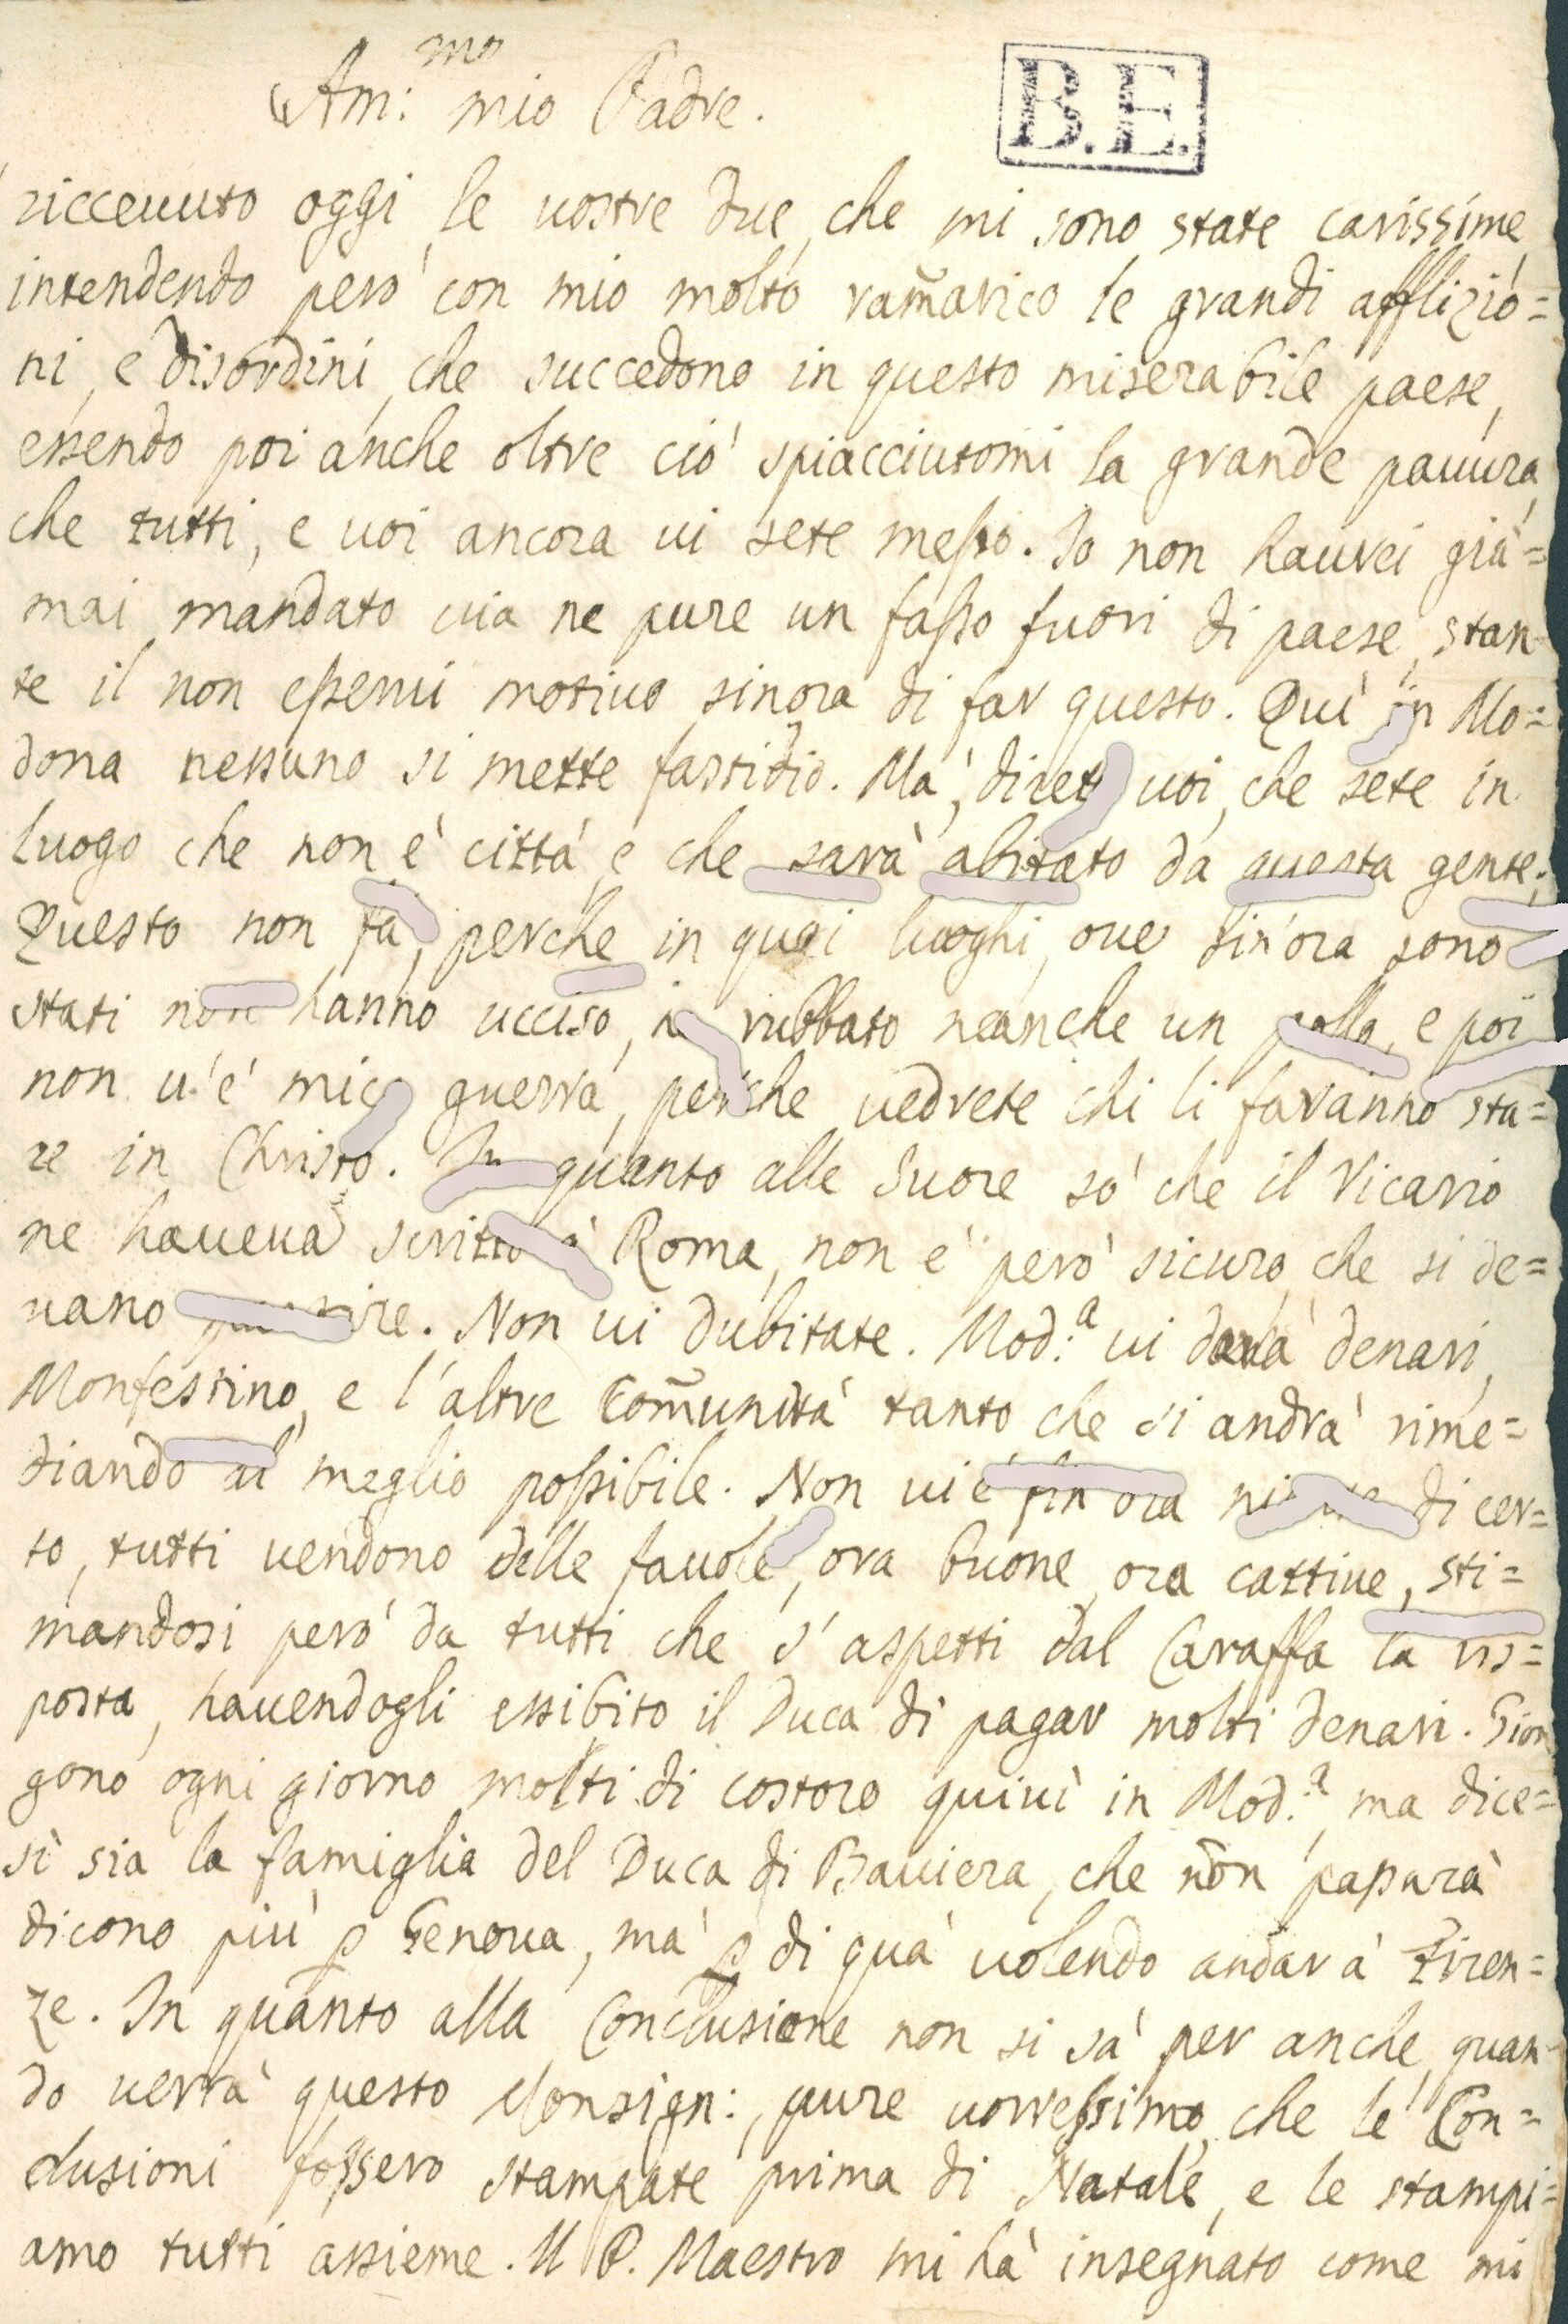 Am:mo mio Padre.
B.E.
riccevuto oggi le vostre due, che mi sono state carissime,
intendendo però con mio molto ram̃arico le grandi afflizio=
ni, e disordini, che succedono in questo miserabile paese,
essendo poi anche oltre ciò spiacciutomi la grande pauura,
che tutti, e uoi ancora ui sete messo. Io non haurei già=
mai mandato uia ne pure un sasso fuori di paese, stan
te il non esserui motiuo sinora di far questo. Quì in Mo=
dona nessuno si mette fastidio. Mà, direte uoi, che sete in
luogo che non è città, e che sarà abitato da questa gente;
Questo non fà, perche in quei luoghi, oue sin'ora sono
stati non hanno ucciso, rubbato neanche un pollo, e poi
non u'è mica guerra, perche uedrete chi li faranno sta=
re in Christo. In quanto alle Suore sò che il Vicario
ne haueua scritto à Roma, non è però sicuro, che si de=
uano. Non ui dubitate. Mod:a ui darà denari,
Monfestino, e l'altre Com̃unità tanto che si andrà rime=
diando al meglio possibile. Non ui è sin ora niente di cer=
to, tutti uendono delle fauole, ora buone, ora cattiue, sti=
mandosi però da tutti che s'aspetti dal Caraffa la ris=
posta, hauendogli essibito il Duca di pagar molti denari. Gion
gono ogni giorno molti di costoro quiuì in Mod:a, ma dice=
sì sia la famiglia del Duca di Bauiera, che nõn passarà
dicono più p Genoua, mà p di quà uolendo andar à Firen=
ze. In quanto alla Conclusione non si sà per anche, quan
do uerrà questo Monsign:, pure uorressimo, che le Con=
clusioni fossero stampate prima di Natale, e le stampi=
amo tutti assieme. Il P. Maestro mi hà insegnato come mi